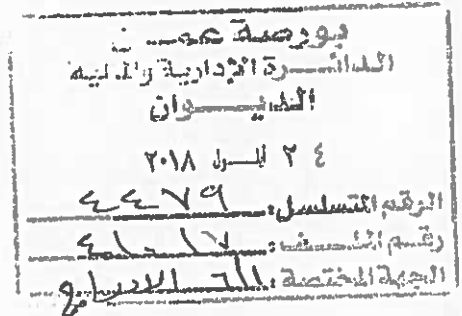 بورصة عمان
الدائرة الإدارية والمالية
الديوان
٢٤ أيلول ٢٠١٨
الرقم المتسلسل: ٤٤٧٩
رقم الملف: ٤١٠١٧
الجهة المختصة: الإدراج